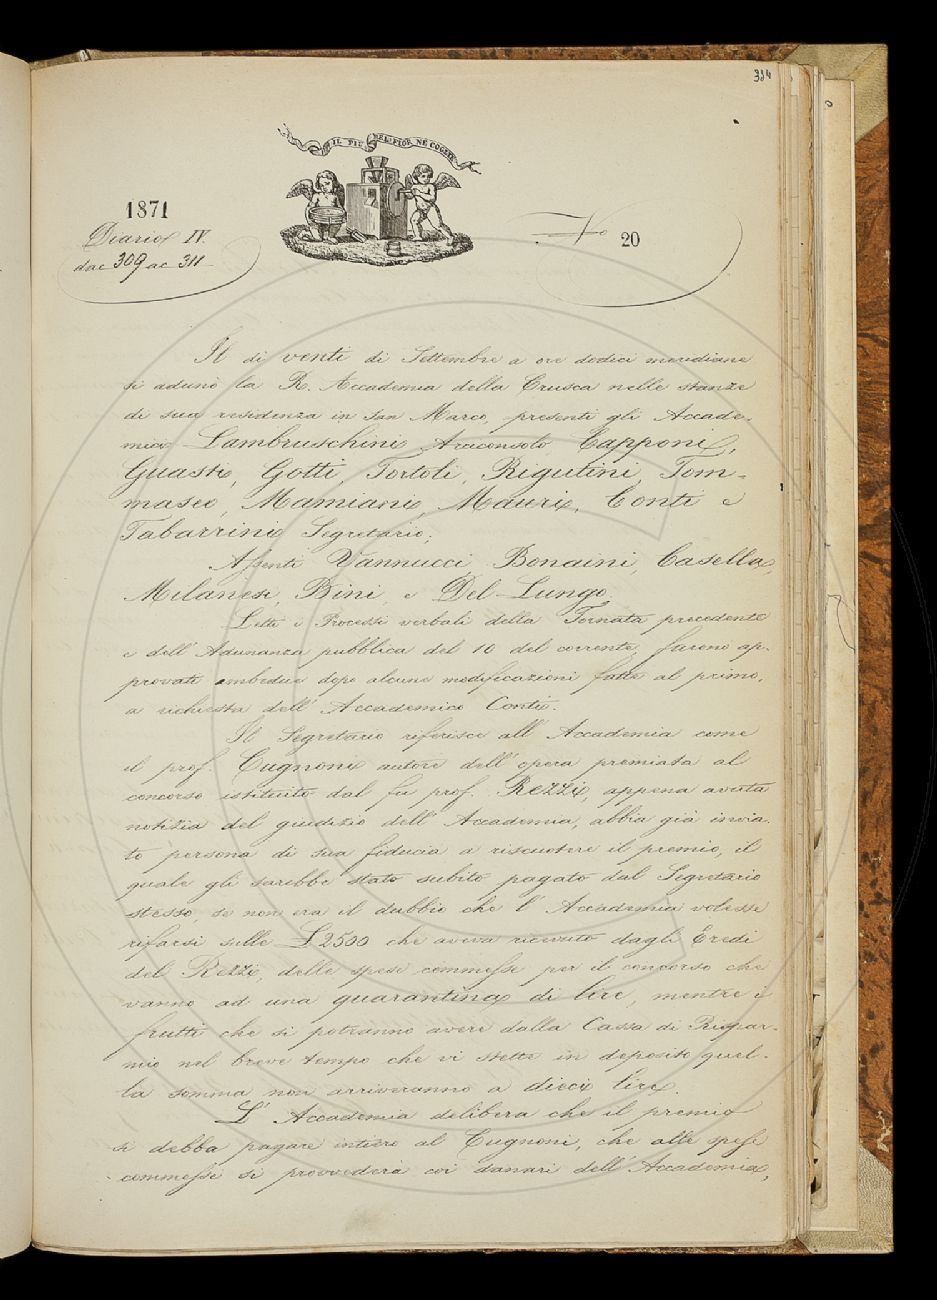 334
IL PIÙ BEL FIOR NE COGLIE
1871
Diario IV.
da c 309 a c 311
No 20
Il dì venti di Settembre a ore dodici meridiane
si adunò la R. Accademia della Crusca nelle stanze
di sua residenza in San Marco, presenti gli Accade-
mici Lambruschini Arciconsolo, Capponi,
Guasti, Gotti, Tortoli, Rigutini, Tom-
maseo, Mamiani, Mauri, Conti e
Tabarrini Segretario;
Assenti Vannucci Bonaini, Casella,
Milanesi, Bini, e Del-Lungo.
Letti i Processi verbali della Tornata precedente
e dell'Adunanza pubblica del 10 del corrente, furono ap-
provati ambedue dopo alcune modificazioni fatte al primo,
a richiesta dell'Accademico Conti.
Il Segretario riferisce all'Accademia come
il prof. Cugnoni autore dell'opera premiata al
concorso istituito dal fu prof. Rezzi, appena avuta
notizia del giudizio dell'Accademia, abbia già invia-
to persona di sua fiducia a riscuotere il premio, il
quale gli sarebbe stato subito pagato dal Segretario
stesso, se non era il dubbio che l'Accademia volesse
rifarsi sulle £ 2500 che aveva ricevuto dagli Eredi
del Rezzi, delle spese commesse per il concorso che
vanno ad una quarantina di lire, mentre i
frutti che si potranno avere dalla Cassa di Rispar-
mio nel breve tempo che vi stette in deposito quel-
la somma non arriveranno a dieci lire.
L'Accademia delibera che il premio
si debba pagare intiero al Cugnoni, che alle spese
commesse si provvederà coi danari dell'Accademia,